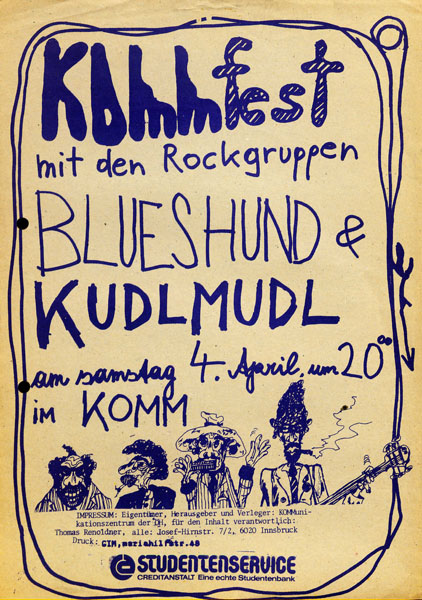 Kommfest
mit den Rockgruppen
BLUESHUND &
KUDLMUDL
am samstag 4. April, um 20⁰⁰
im KOMM
IMPRESSUM: Eigentümer, Herausgeber und Verleger: KOMMuni-
kationszentrum der ÖH, für den Inhalt verantwortlich:
Thomas Renoldner, alle: Josef-Hirnstr. 7/2, 6020 Innsbruck
Druck: GIM, mariahilfstr. 48
STUDENTENSERVICE
CREDITANSTALT Eine echte Studentenbank